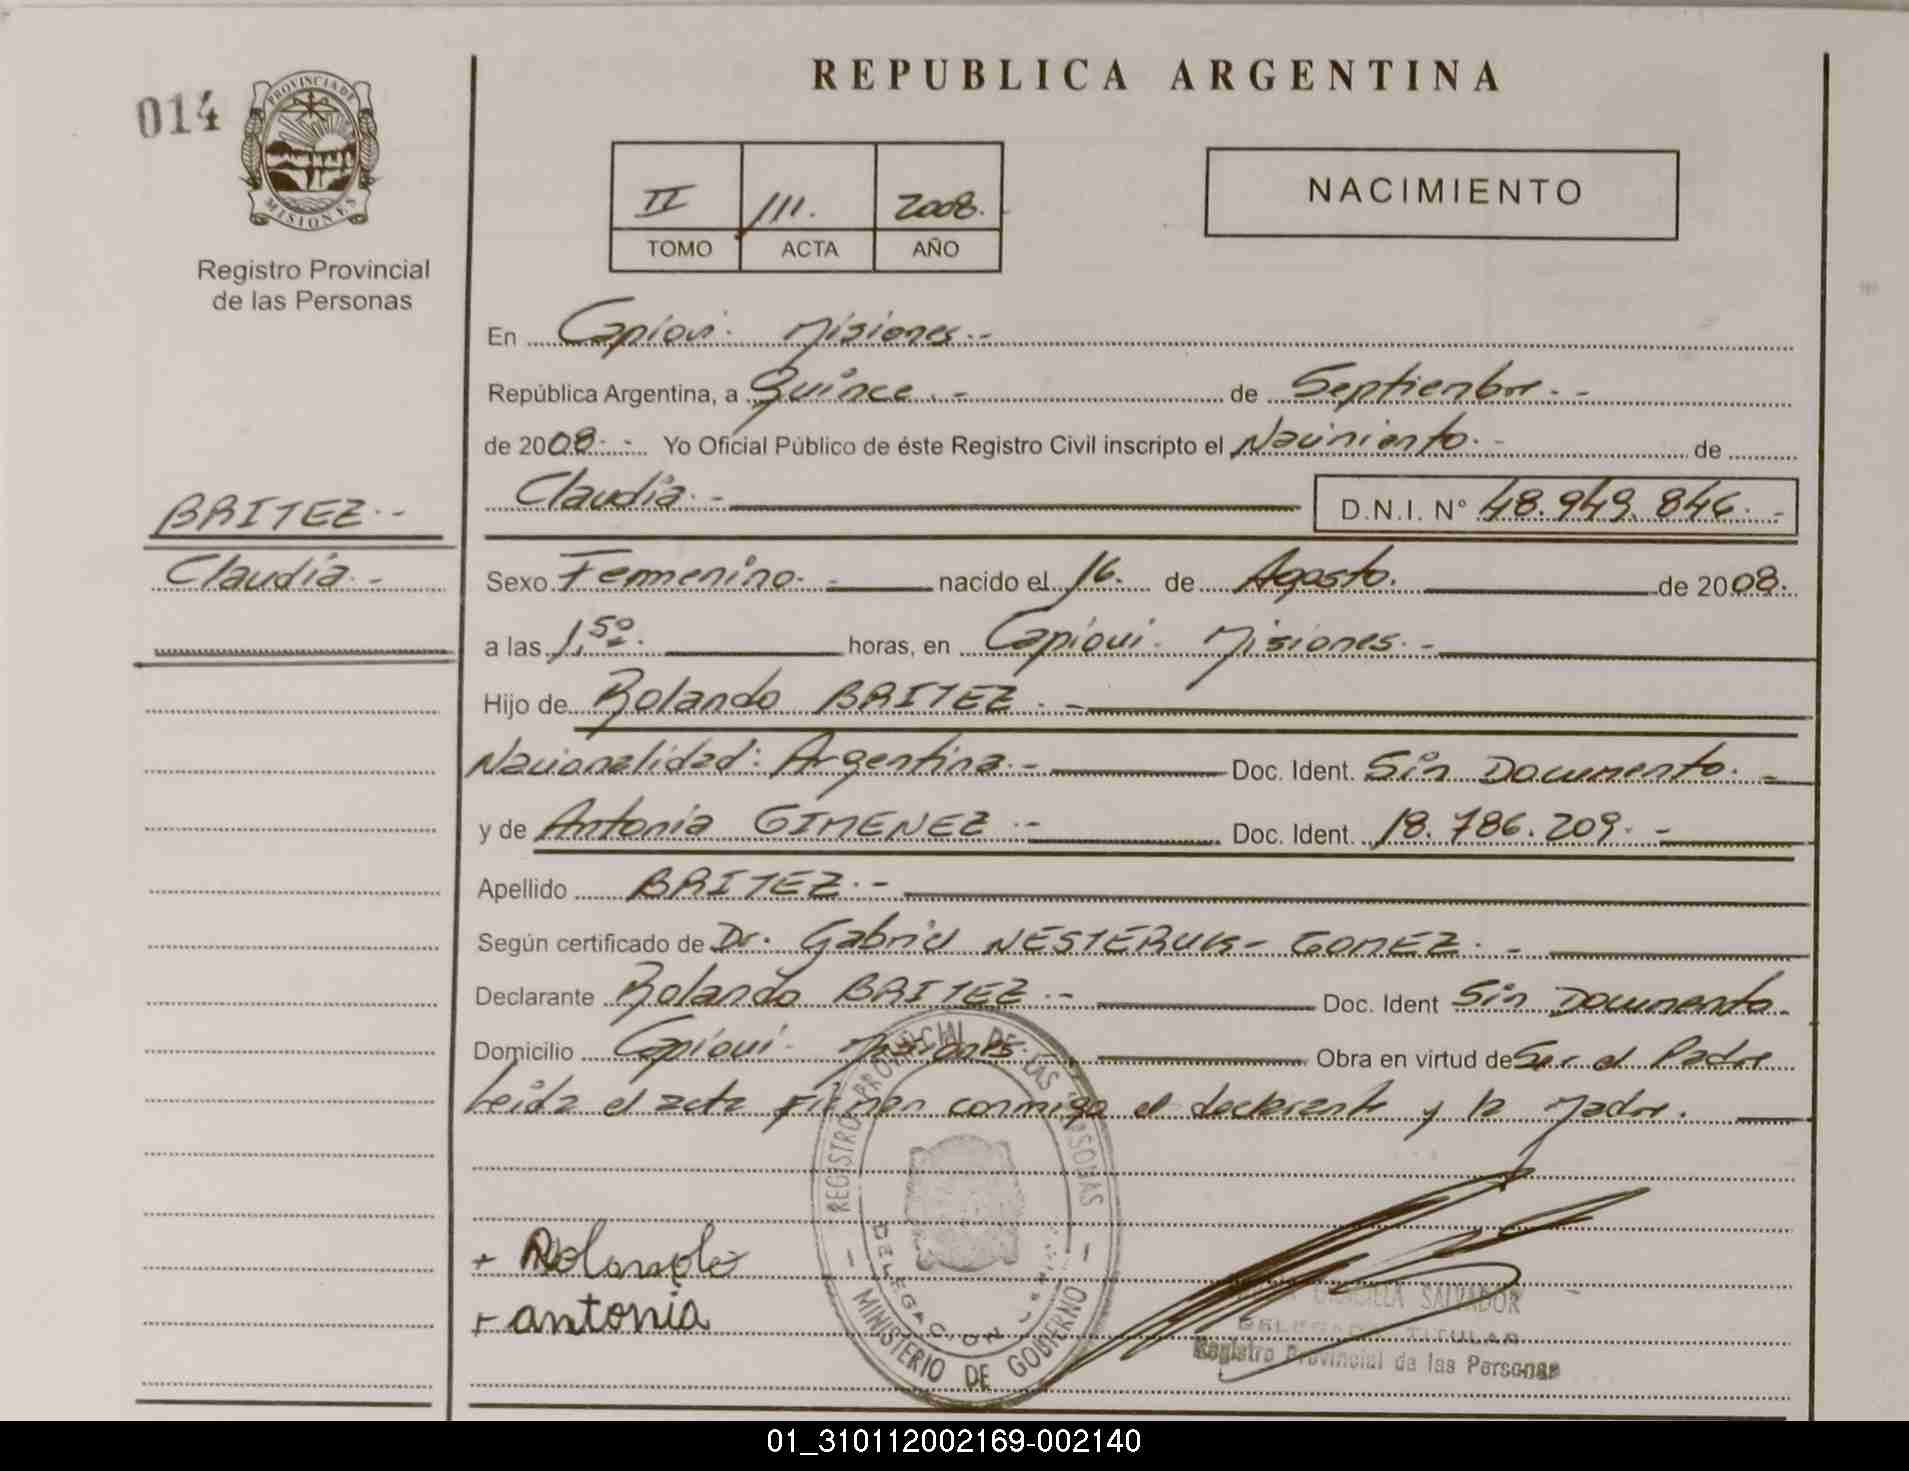 REPUBLICA ARGENTINA
014
PROVINCIA DE
MISIONES
Registro Provincial
de las Personas
II 111. 2008.
TOMO ACTA AÑO
NACIMIENTO
En Capiovi. Misiones.-
República Argentina, a Quince.- de Septiembre.-
de 2008.- Yo Oficial Público de éste Registro Civil inscripto el Nacimiento.- de
Claudia.- D.N.I. N° 48.949.846.-
BRITEZ.-
Claudia.-
Sexo Femenino.- nacido el 16. de Agosto. de 2008.
a las 1,50. horas, en Capiovi. Misiones.-
Hijo de Rolando BRITEZ.-
Nacionalidad: Argentina.- Doc. Ident. Sin Documento.-
y de Antonia GIMENEZ.- Doc. Ident. 18.786.209.-
Apellido BRITEZ.-
Según certificado de Dr. Gabriel NESTERUK- GOMEZ.-
Declarante Rolando BRITEZ.- Doc. Ident Sin Documento.
Domicilio Capiovi. Misiones.- Obra en virtud de Ser el Padre
Leida el acta firman conmigo el declarante y la Madre.
REGISTRO PROVINCIAL DE LAS PERSONAS
DELEGACION
MINISTERIO DE GOBIERNO
+ Rolando
+ antonia
SALVADOR
DELEGADO TITULAR
Registro Provincial de las Personas
01_310112002169-002140